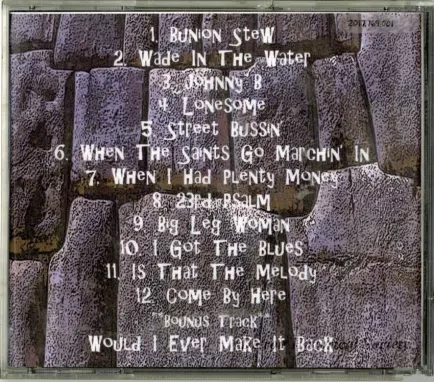 2017.169.001
1. Bunion Stew
2. Wade In The Water
3. Johnny B
4. Lonesome
5. Street Bussin'
6. When The Saints Go Marchin' In
7. When I Had Plenty Money
8. 23rd Psalm
9. Big Leg Woman
10. I Got The Blues
11. Is That The Melody
12. Come By Here
"Bounus Track"
Would I Ever Make It Back
Society